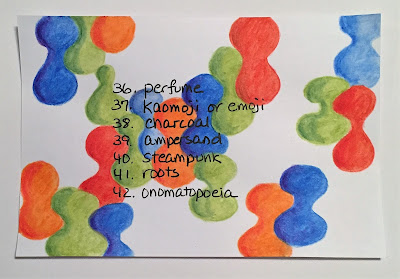 36. perfume
37. kaomoji or emoji
38. charcoal
39. ampersand
40. steampunk
41. roots
42. onomatopoeia